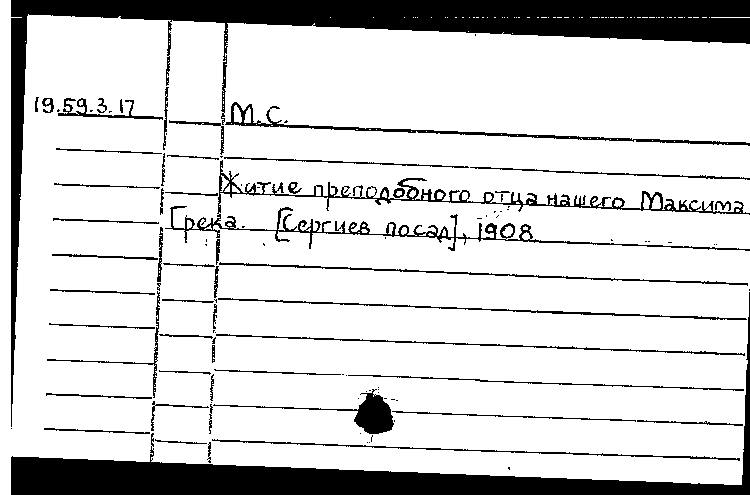 19.59.3.17 М.С.
Житие преподобного отца нашего Максима
Грека. [Сергиев посад], 1908